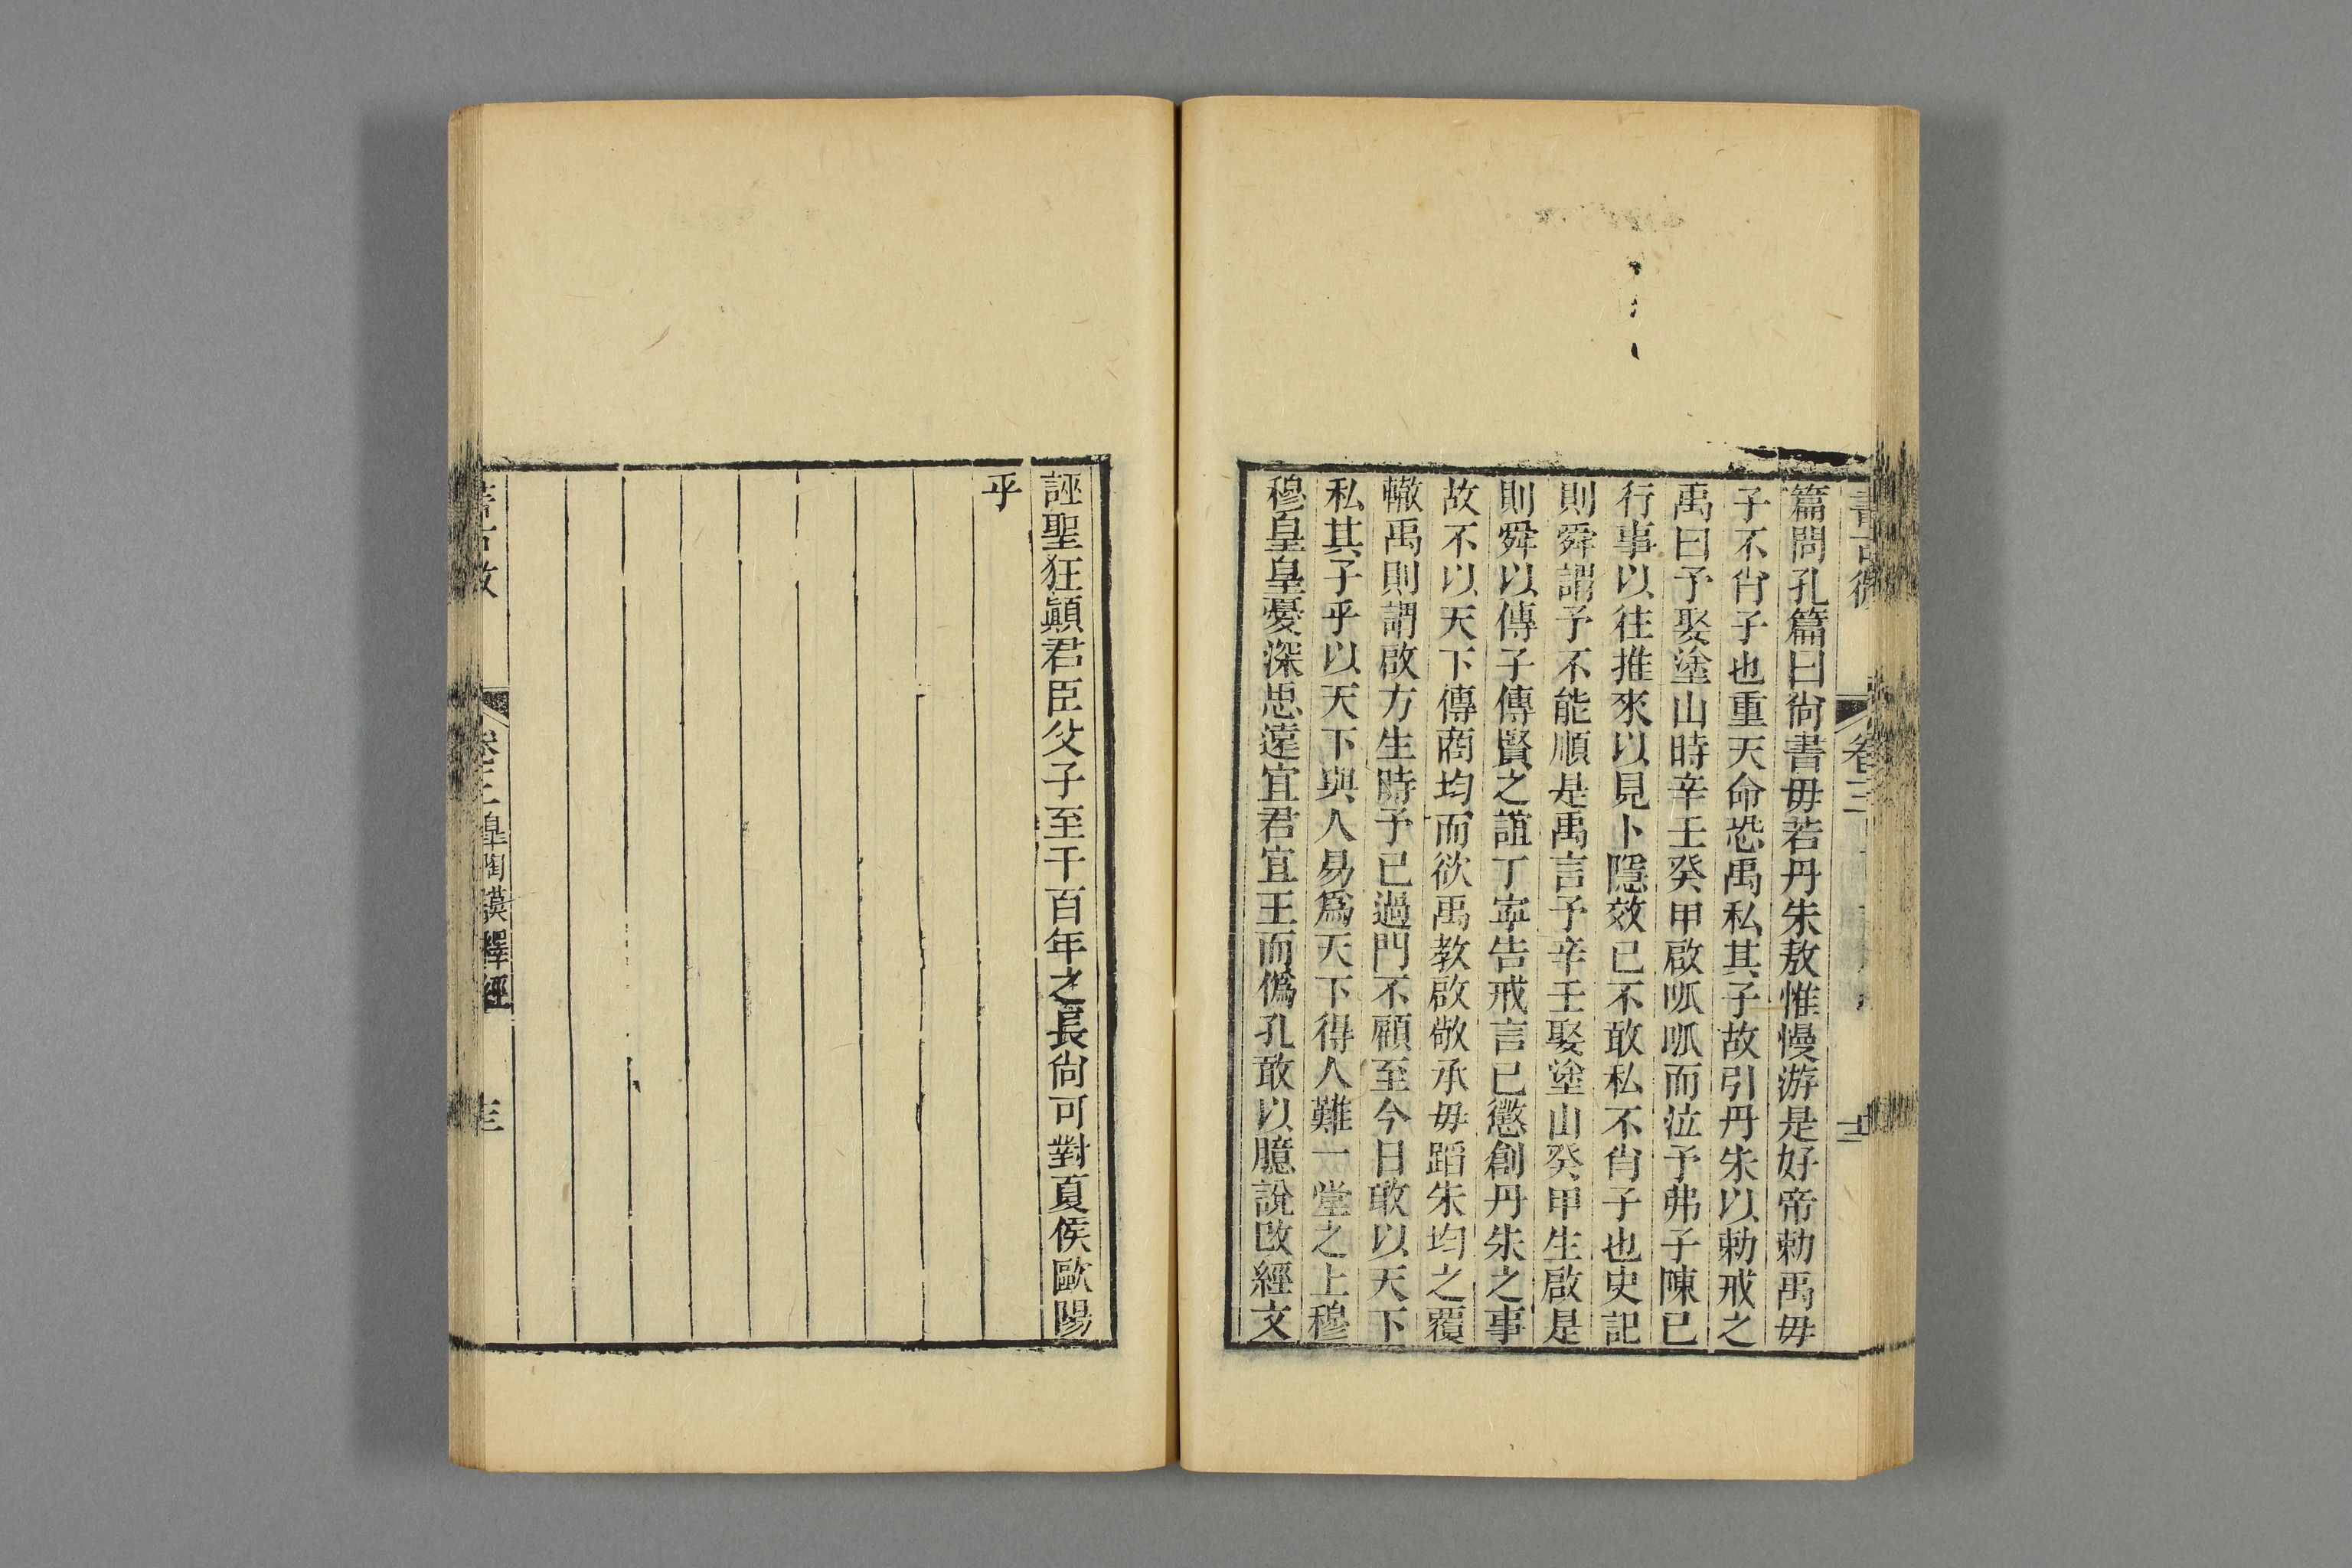 卷三
篇問孔篇曰尙書毋若丹朱敖惟慢游是好帝勅禹毋
子不肖子也重天命恐禹私其子故引丹朱以勅戒之
禹曰予娶塗山時辛壬癸甲啟呱呱而泣予弗子陳已
行事以往推來以見卜隱效已不敢私不肖子也史記
則舜謂予不能順是禹言予辛壬娶塗山癸甲生啟是
則舜以傳子傳賢之誼丁寧告戒言已懲創丹朱之事
故不以天下傳商均而欲禹教啟敬承毋蹈朱均之覆
轍禹則謂啟方生時予已過門不顧至今日敢以天下
私其子乎以天下與人易爲天下得人難一堂之上穆
穆皇皇憂深思遠宜君宜王而僞孔敢以臆說改經文
誣聖狂顚君臣父子至千百年之長尙可對夏侯歐陽
乎
皐陶謨釋經